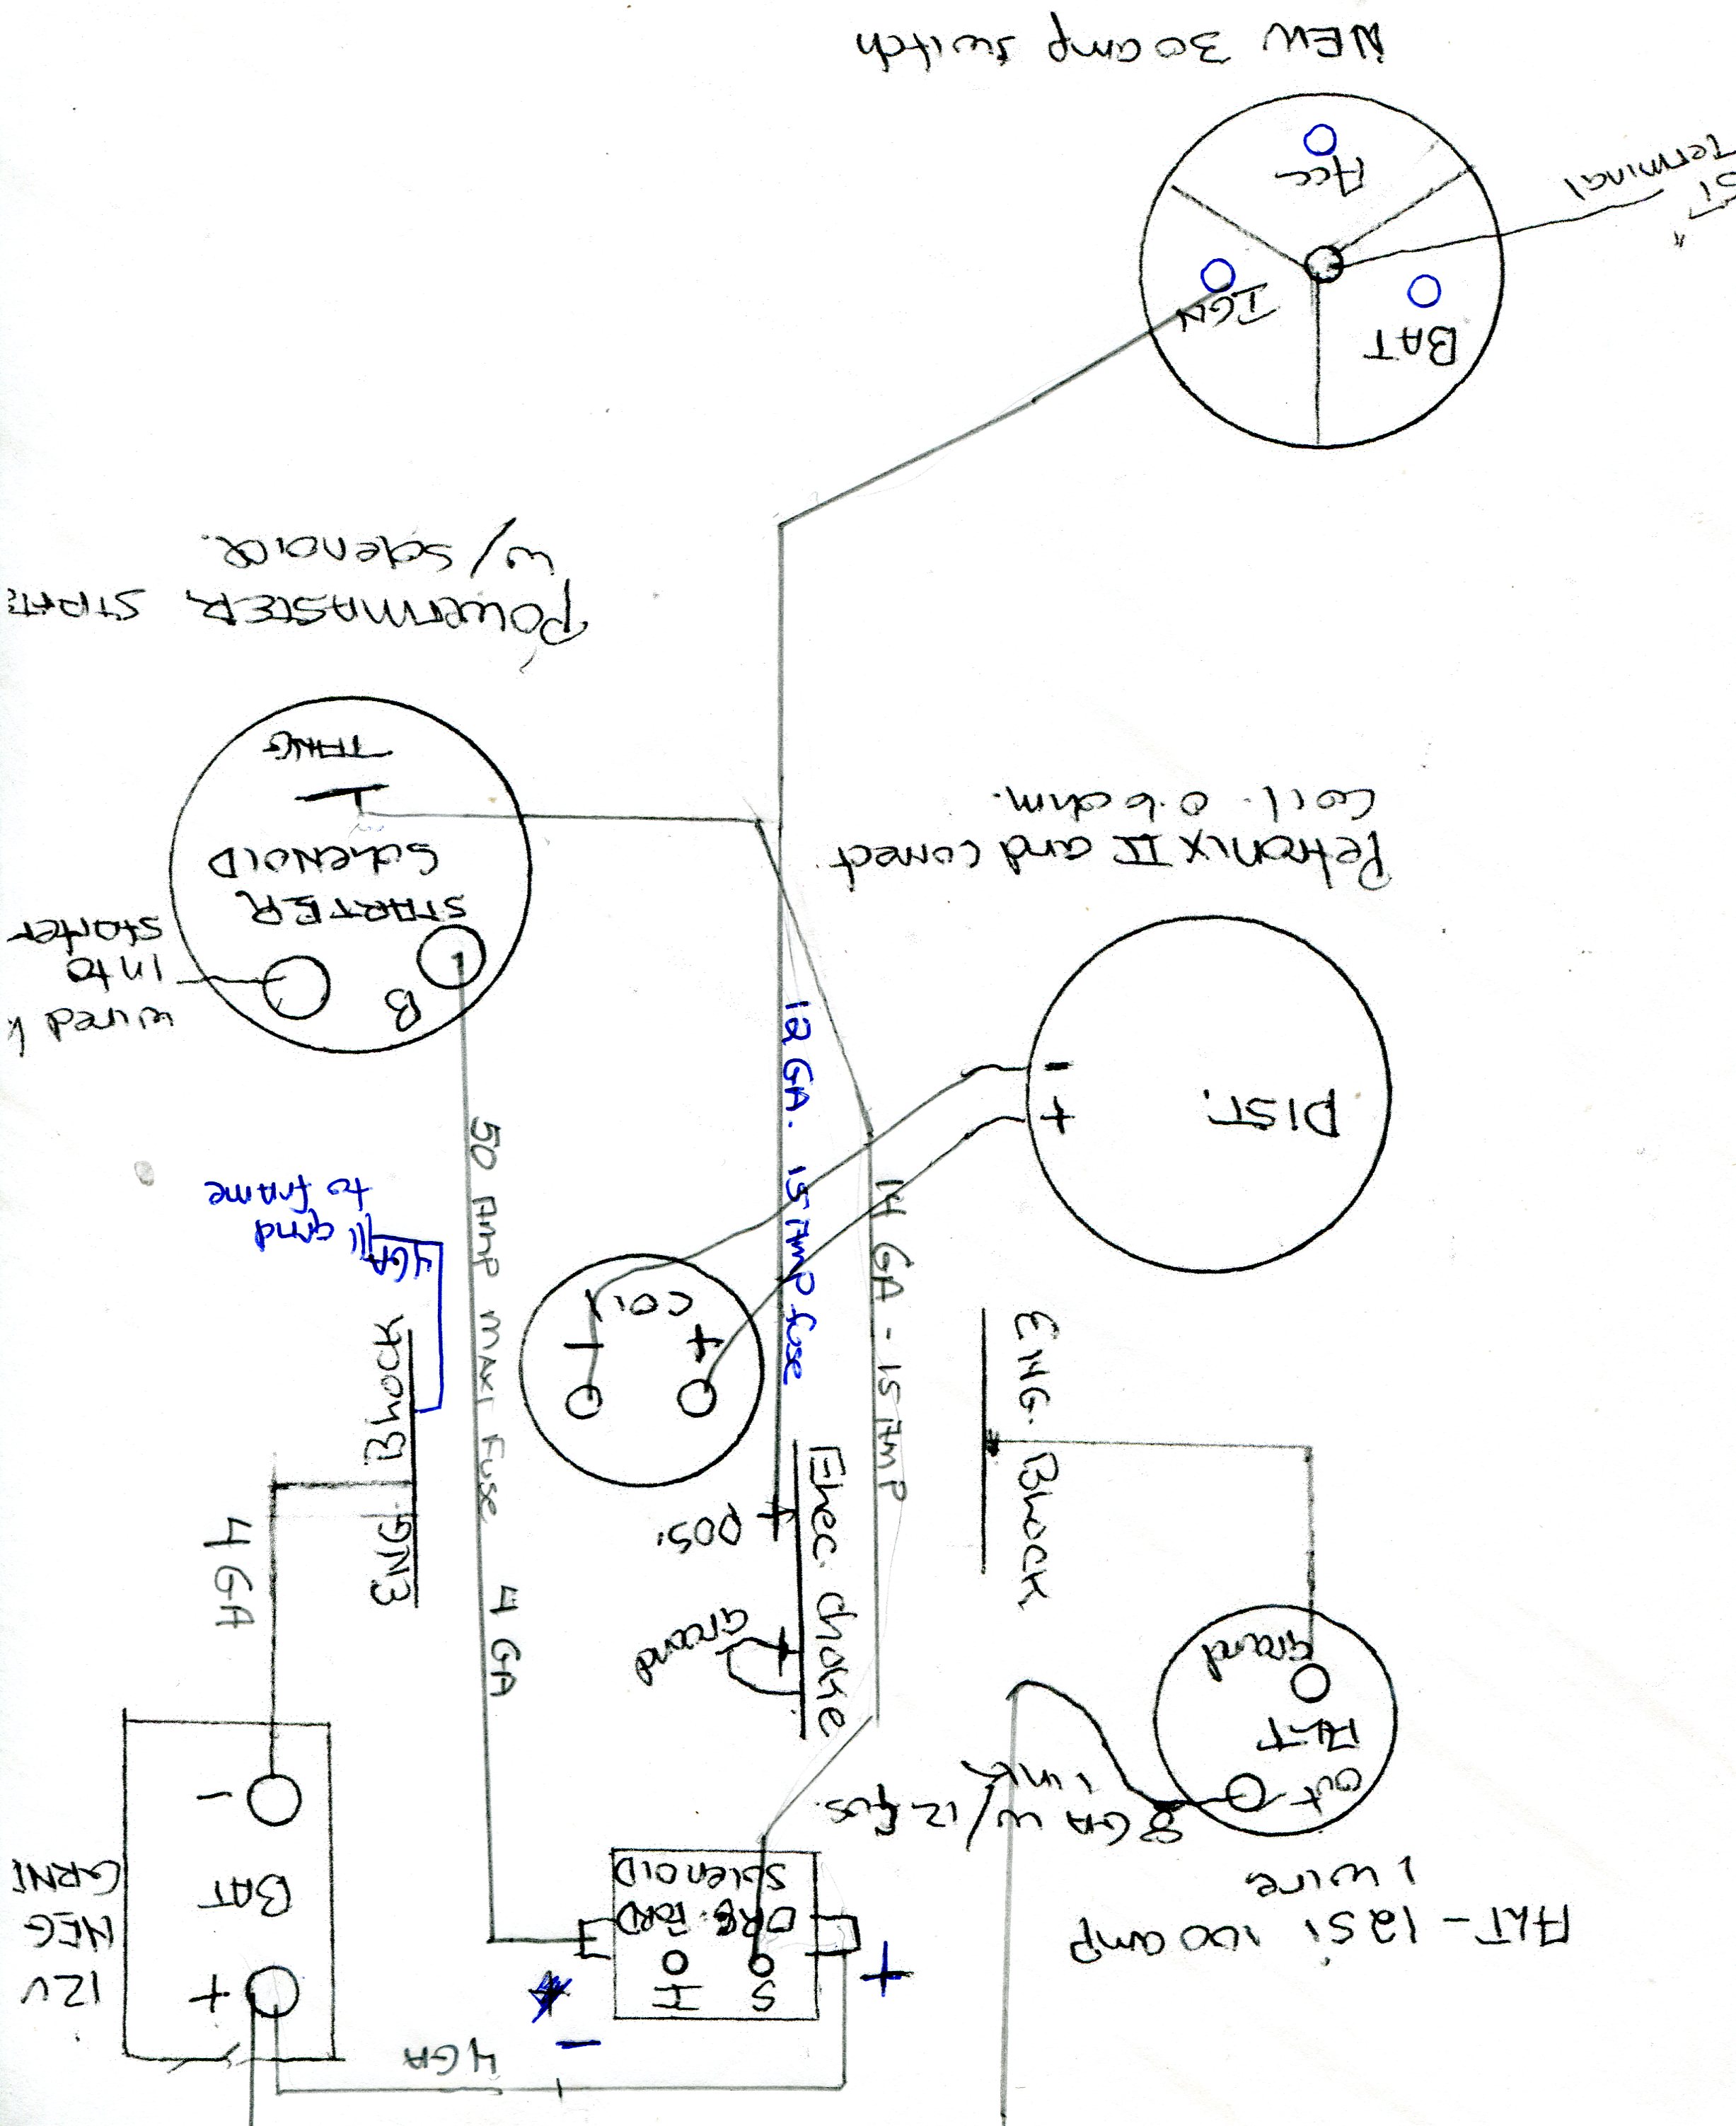 4 GA
+
-
S I
ORG. FORD
SOLENOID
+
12V
NEG
GRN
BAT
-
ALT - 12Si 100 amp
1 wire
8 GA w/ 12 fus.
link
out
ALT
Grand
ENG. Block
Elec. choke
ground
pos.
4 GA
ENG Block
4 GA
grnd
to frame
50 AMP MAXI FUSE 4 GA
14 GA - 15 AMP
12 GA. 15 AMP fuse
+ -
COIL
DIST.
+
-
Petronix II and correct
Coil. 0.6 ohm.
B
wired
into
starter
STARTER
SOLENOID
TANG
POWERMASTER START
w/ solenoid.
BAT
IGN
ACC
Terminal
NEW 30 amp switch